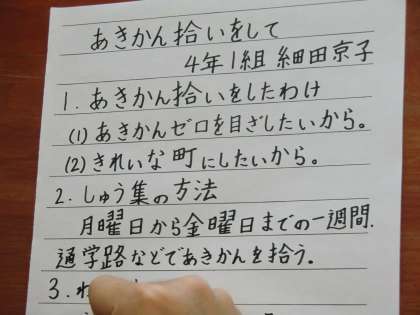 あきかん拾いをして
4年1組 細田京子
1. あきかん拾いをしたわけ
(1) あきかんゼロを目ざしたいから。
(2) きれいな町にしたいから。
2. しゅう集の方法
月曜日から金曜日までの一週間.
通学路などであきかんを拾う。
3. わ